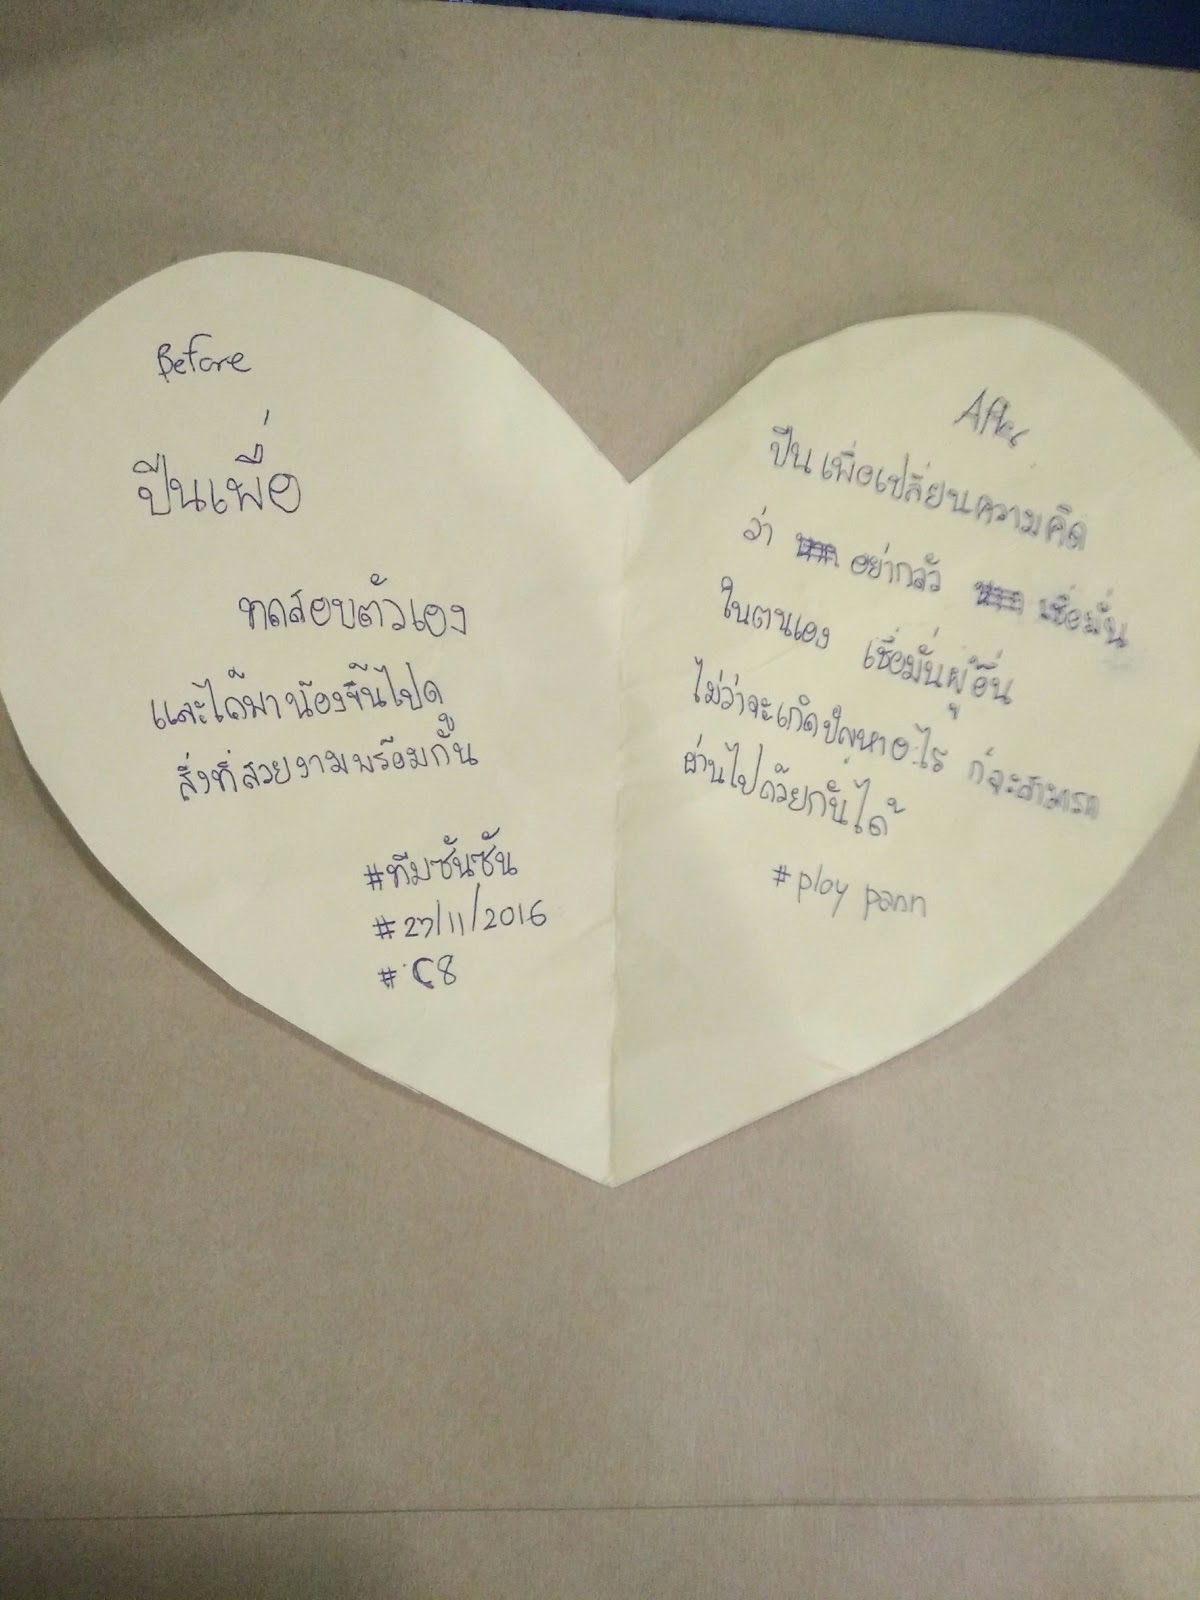 Before
ปีนเพื่อ
ทดสอบตัวเอง
และได้พาน้องขึ้นไปดู
สิ่งที่สวยงามพร้อมกัน
#ทีมซันซัน
#27/11/2016
#C8
After
ปีนเพื่อเปลี่ยนความคิด
ว่า อย่ากลัว เชื่อมั่น
ในตนเอง เชื่อมั่นผู้อื่น
ไม่ว่าจะเกิดปัญหาอะไร ก็จะสามารถ
ผ่านไปด้วยกันได้
#ploy pann